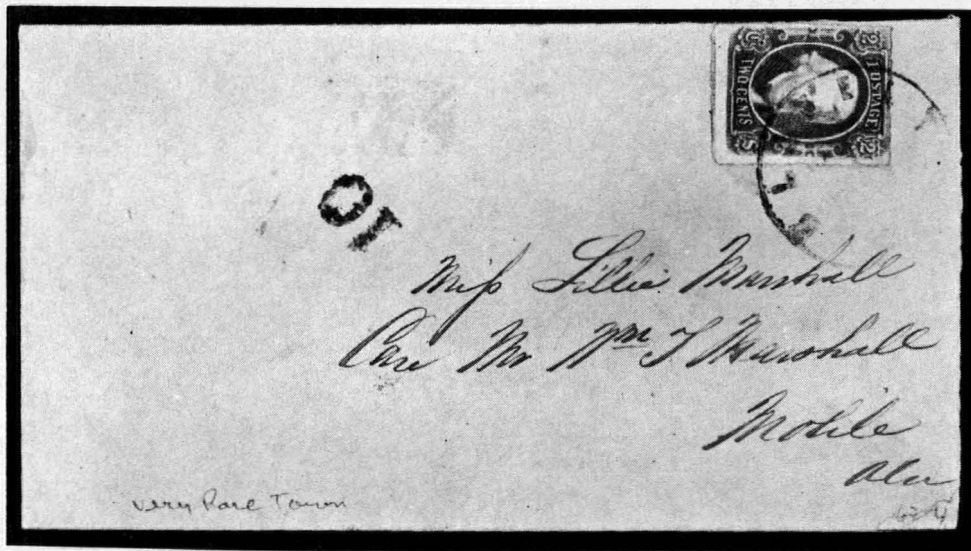 2 POSTAGE 2
TWO CENTS
10
Miss Lillie Marshall
Care Mr Wm T Marshall
Mobile
Ala
very Rare Town